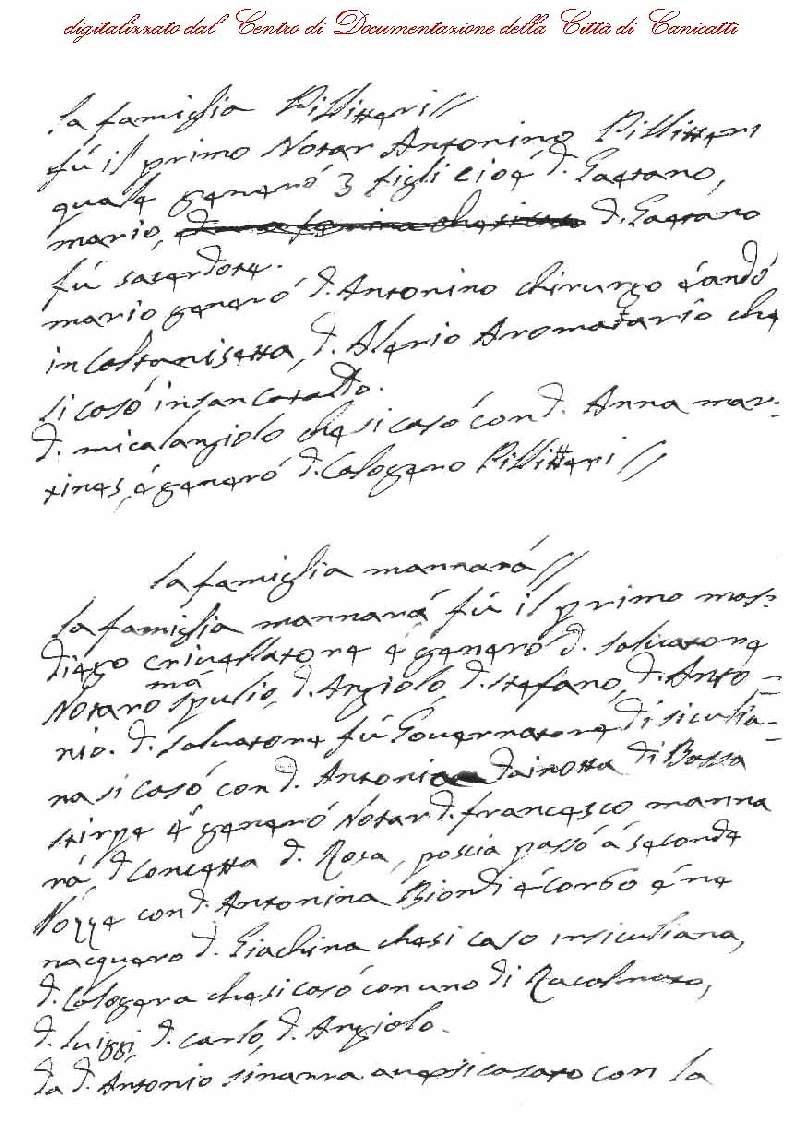 digitalizzato dal Centro di Documentazione della Città di Canicattì
la famiglia Pillitteri //
fú il primo Notar Antonino Pillitteri
quale generó 3 figli cioé d. Gaetano,
mario, d. Gaetano
fú sacerdote.
mario generó d. Antonino chirurgo é andó
in Caltanisetta, d. Alerio Aromatario che
si casó in san Cataldo.
d. micalangiolo che si casó con d. Anna mar:
tines, é generó d. Calogero Pillitteri //
la famiglia mannará //
la famiglia mannará fú il primo mas:
diego crivellatore é generó d. salvatore
Notaro má spulio, d. Angiolo, d. stefano, d. Anto =
nio. d. salvatore fú Governatore di siculia =
na si casó con d. Antonia dainotta di Bassa
stirpe é generó Notar d. francesco manna
rá, d. Concetta d. Rosa, poscia passó á seconde
Nozze con d. Antonina Biondi é corbo é ne
nacquero d. Giachina che si caso in siculiana,
d. Calogera che si casó con uno di Racalmuto,
d. luiggi, d. carlo, d. Angiolo.
da d. Antonio si casato con la